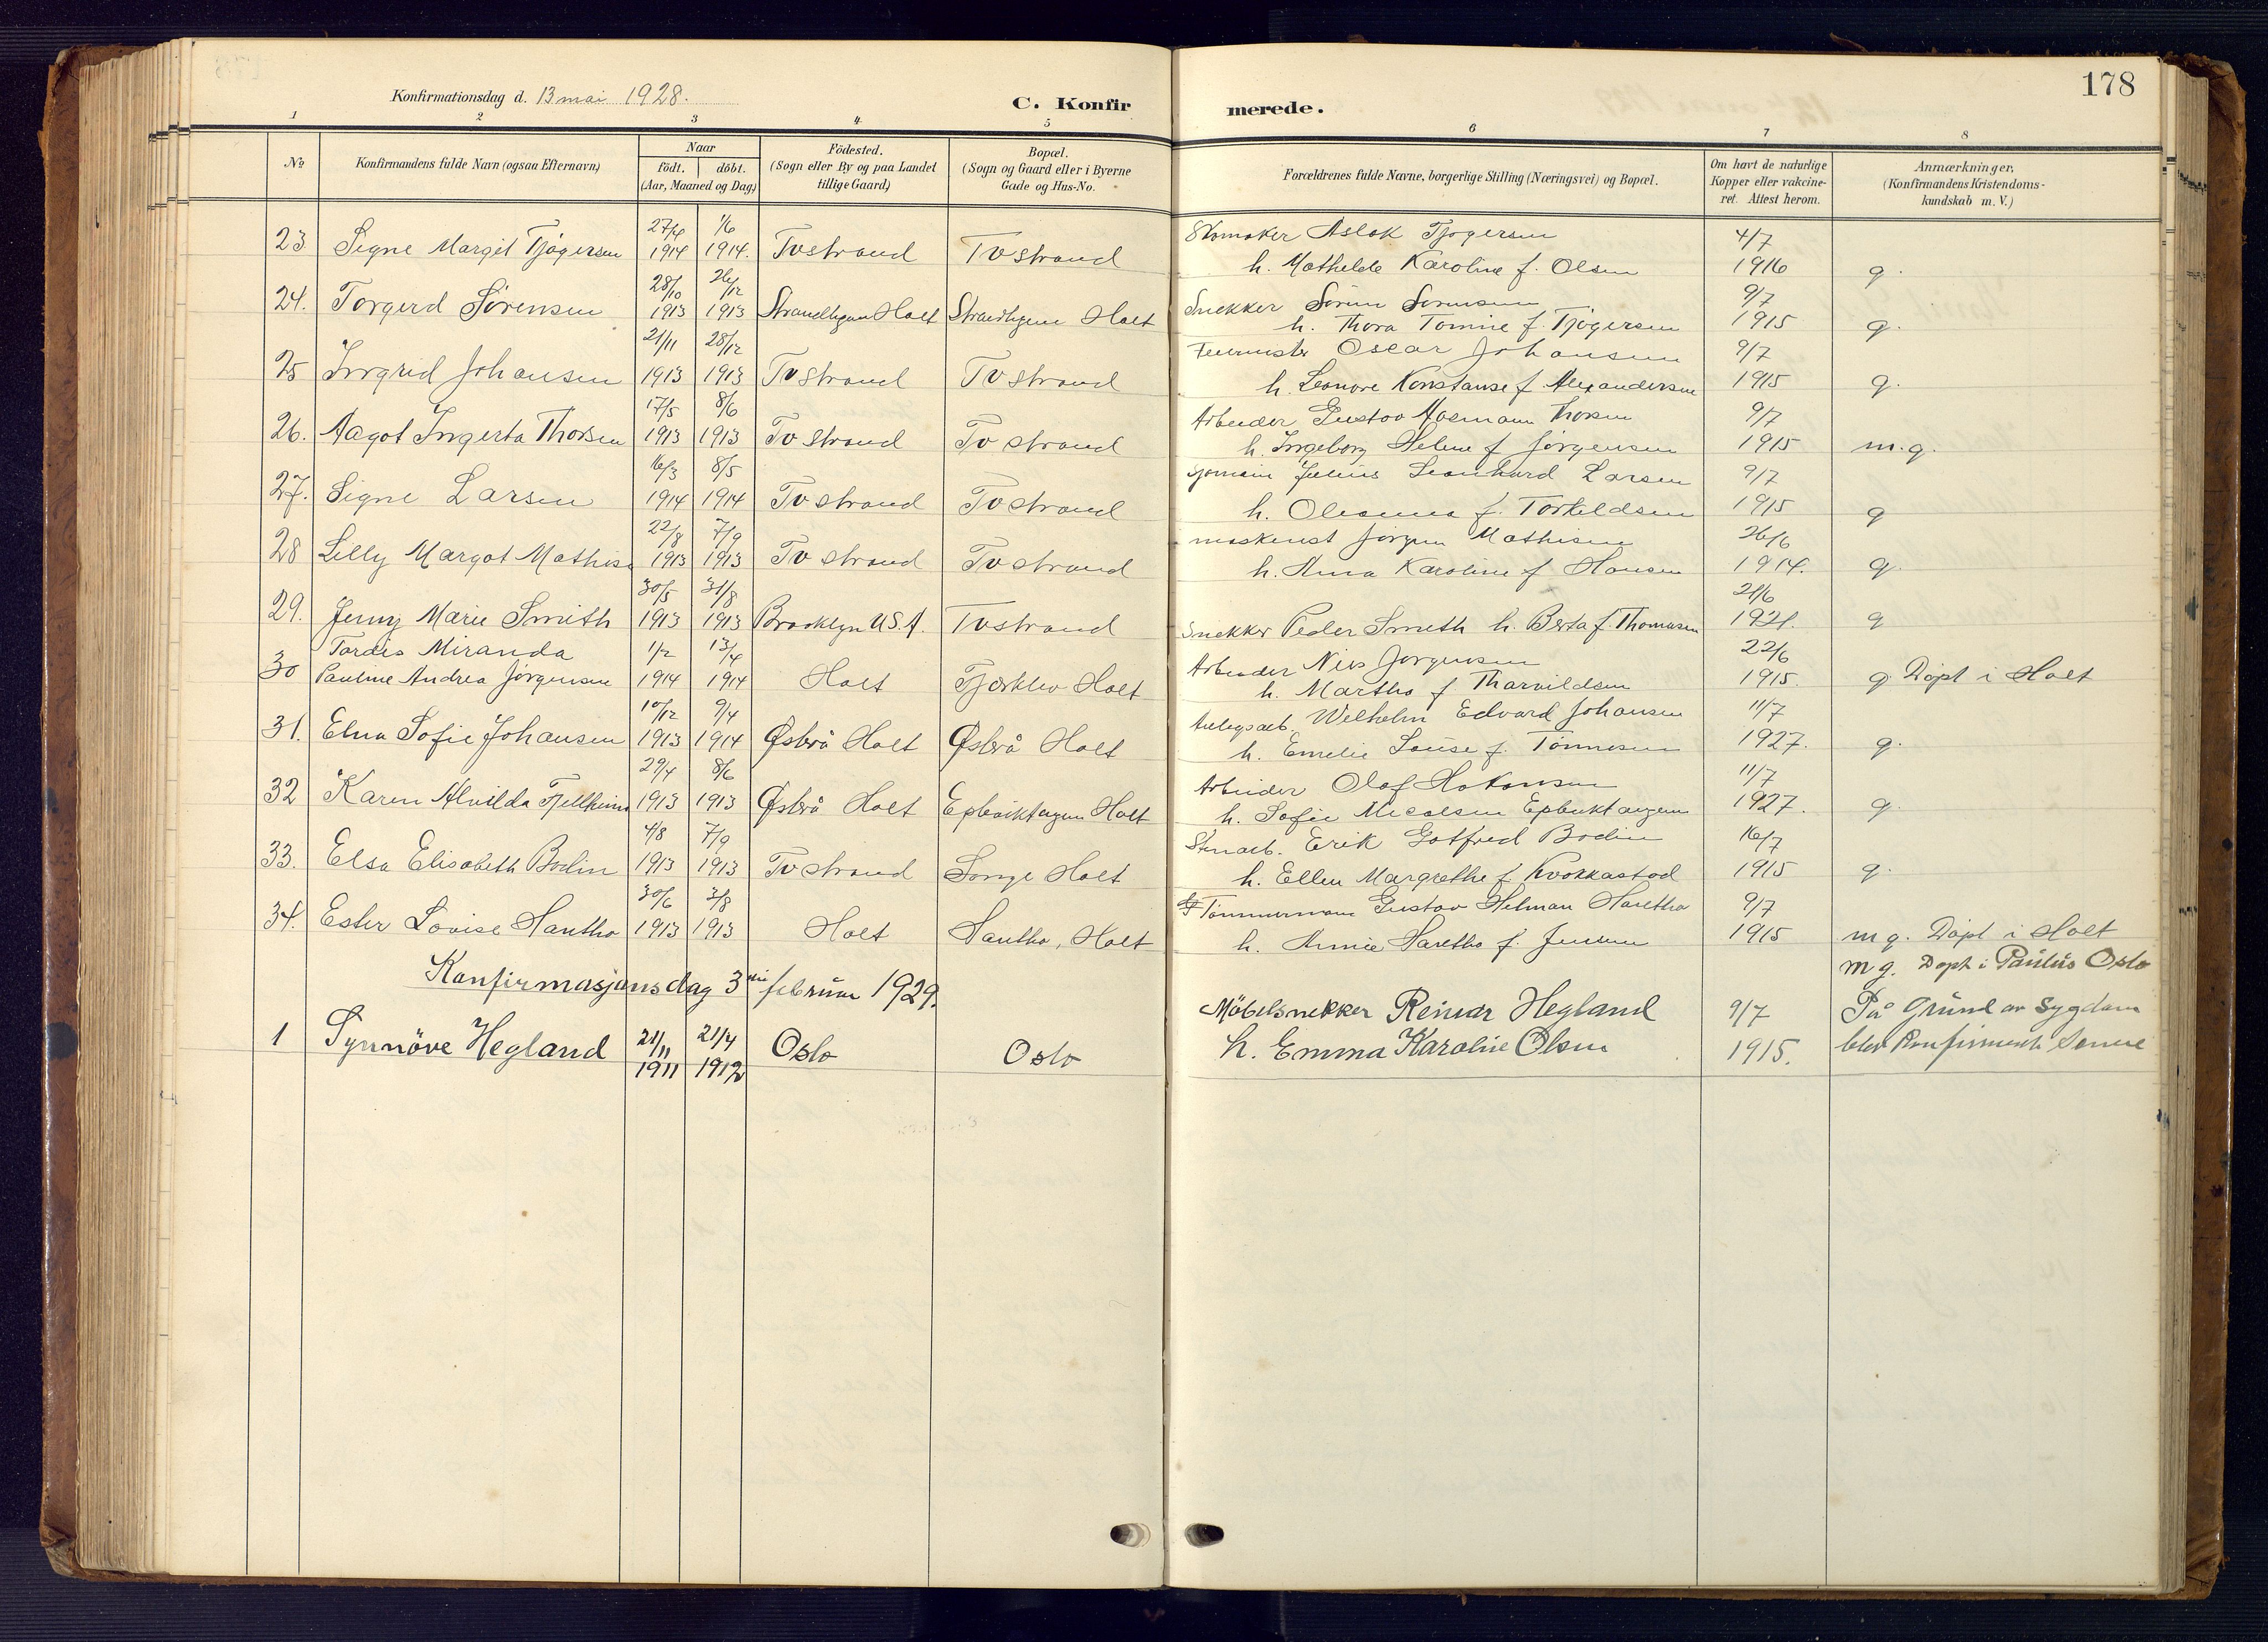 178
Konfirmationsdag d. 13 mai 1928.
C. Konfirmerede.
1 2 3 4 5 6 7 8
No Konfirmandens fulde Navn (ogsaa Efternavn) Naar födt. döbt. (Aar, Maaned og Dag) Födested. (Sogn eller By og paa Landet tillige Gaard) Bopæl. (Sogn og Gaard eller i Byerne Gade og Hus-No. Forældrenes fulde Navne, borgerlige Stilling (Næringsvei) og Bopæl. Om havt de naturlige Kopper eller vakcineret. Attest herom. Anmærkninger. (Konfirmandens Kristendomskundskab m. V.)
23 Signe Margit Tjøgersen 27/4 1914 1/6 1914. Tvstrand Tvstrand Skomaker Aslak Tjøgersen 4/7 1916 g.
h. Mathilde Karoline f. Olsen
24. Torgerd Sørensen 28/10 1913 26/12 1913 Strandlyen Holt Strandlyene Holt Snekker Søren Sørensen 9/7 1915 g.
h. Thora Tomine f. Tjøgersen
25 Ingrid Johansen 21/11 1913 28/12 1913 Tvstrand Tvstrand Oscar Johansen 9/7 1915 g.
h. Leonore Konstanse f. Alexandersen
26. Aagot Ingerta Thorsen 17/5 1913 8/6 1913 Tvstrand Tvstrand Arbeider Gustav Thorsen 9/7 1915 m.g.
h. Ingeborg Helene f Jørgensen
27. Signe Larsen 16/3 1914 8/5 1914 Tvstrand Tvstrand Sjømann Julius Leonhard Larsen 9/7 1915 g
h. Oleanna f. Torkeldsen
28 Lilly Margot Mathis 22/8 1913 7/9 1913 Tvstrand Tvstrand maskinist Jørgen Mathisen 26/6 1914. g.
h. Anna Karoline f Hansen
29. Jenny Marie Smith 30/5 1913 31/8 1913 Brooklyn U.S.A. Tvstrand Snekker Peder Smith h. Berta f. Thomasen 21/6 1921. g
30 Tordis Miranda Pauline Andrea Jørgensen 1/2 1914 13/4 1914 Holt Tjærklev Holt Arbeider Nils Jørgensen 22/6 1915. g. Døpt i Holt
h. Martha f Tharvildsen
31. Elna Sofie Johansen 10/12 1913 9/4 1914 Østerå Holt Østerå Holt Anlegsarb. Wilhelm Edvard Johansen 11/7 1927. g.
h. Emelie Louise f. Tönnesen
32 Karen Alvilda Fjellheim 29/4 1913 8/6 1913 Østerå Holt Epleviktangen Holt Arbeider Olaf Hakonsen 11/7 1927. g.
h. Sofie Nicolsen Epleviktangen
33. Elsa Elisabeth Bodin 4/8 1913 7/9 1913 Tvstrand Songe Holt Stenarb. Erik Gotfred Bodin 16/7 1915 g.
h. Ellen Margrethe f Kvokkastad
34. Ester Lovise Hantho 30/6 1913 3/8 1913 Holt Hantho, Holt Tømmermann Gustav Helman Hantho 9/7 1915 m g. Døpt i Holt
h. Annie Hantho f. Jensen
Konfirmasjonsdag 3die februar 1929.
1 Synnöve Hegland 21/11 1911 21/4 1912 Oslo Oslo Möbelsnekker Reinar Hegland 9/7 1915. m g. Döpt i Paulus Oslo
h. Emma Karoline Olsen På Grund av Sygdom
blev Konfirmert Senere